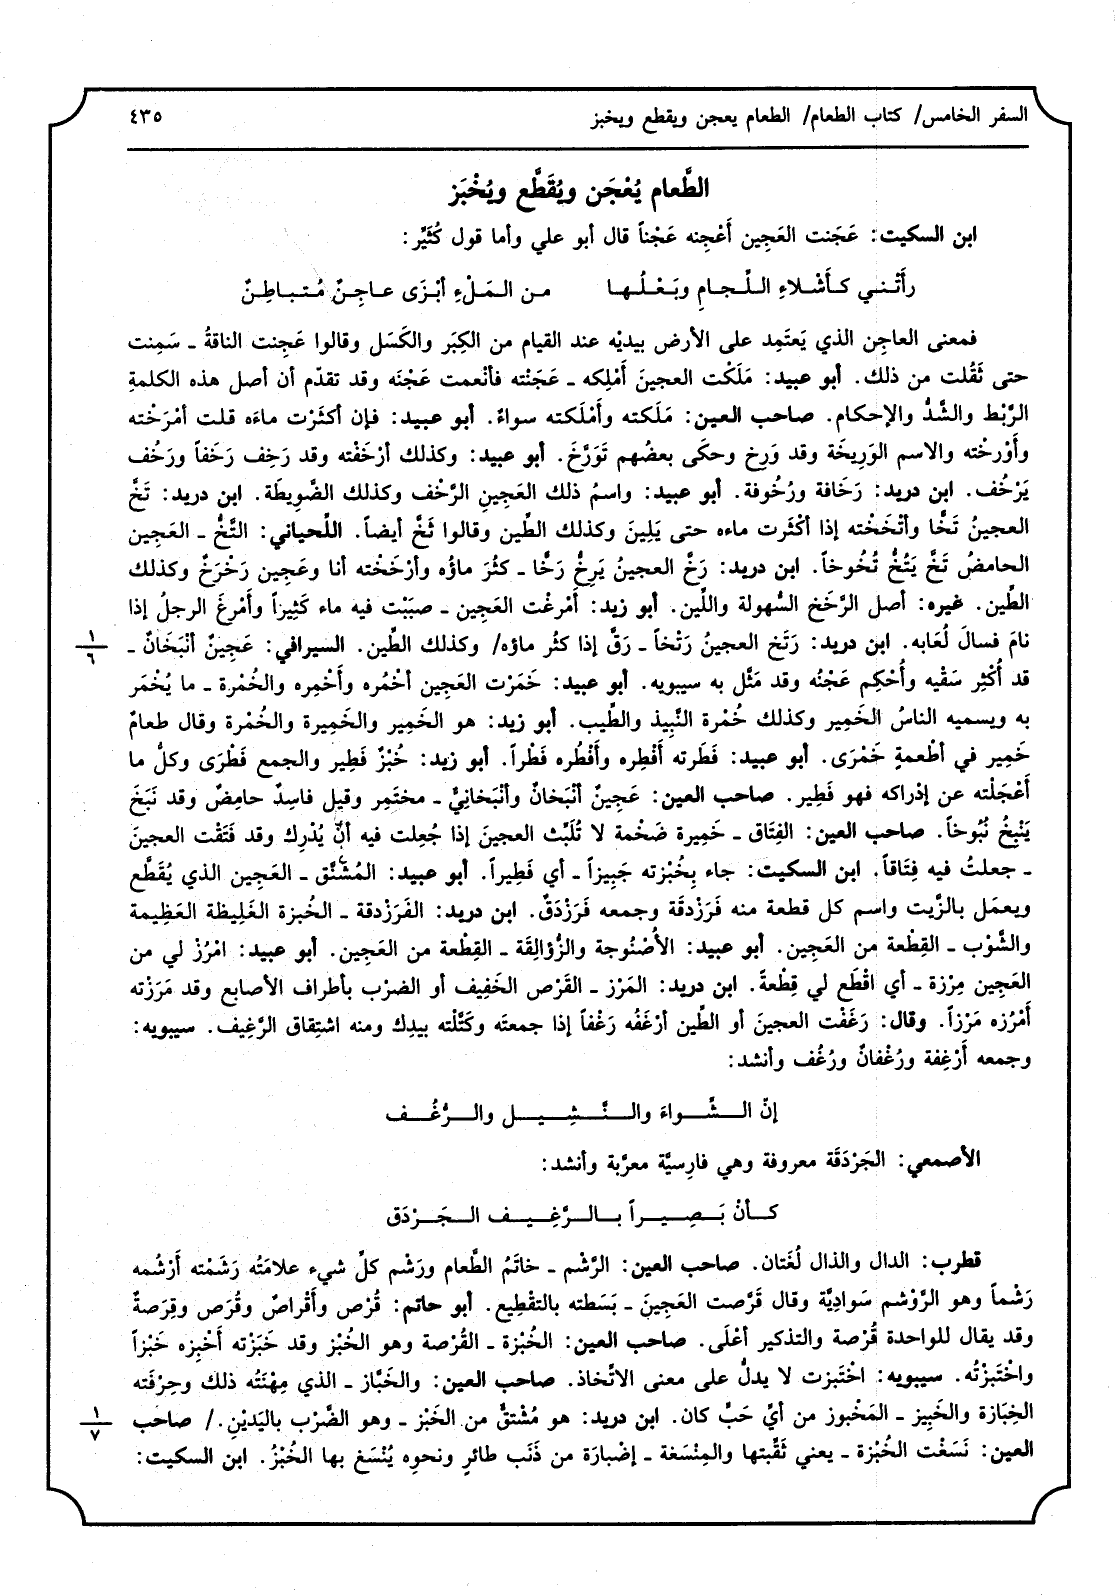 السفر الخامس/ كتاب الطعام/ الطعام يعجن ويقطع ويخبز ٤٣٥
الطَّعام يُعْجَن ويُقَطَّع ويُخْبَز
ابن السكيت: عَجَنت العَجِين أَعْجِنه عَجْناً قال أبو علي وأما قول كُثَيِّر:
رأَتْني كأَشْلاءِ اللِّجامِ وبَعْلُها من المَلْءِ أبْزَى عاجِنٌ مُتباطِنٌ
فمعنى العاجِن الذي يَعتَمِد على الأرض بيديْه عند القيام من الكِبَر والكَسَل وقالوا عَجِنت الناقةُ ـ سَمِنت
حتى ثَقُلت من ذلك. أبو عبيد: مَلَكْت العجينَ أَمْلِكه ـ عَجَنْته فأنْعمت عَجْنَه وقد تقدّم أن أصل هذه الكلمةِ
الرَّبْط والشَّدُّ والإحكام. صاحب العين: مَلَكته وأَمْلَكته سواءٌ. أبو عبيد: فإن أكثَرْت ماءَه قلت أمْرَخْته
وأَوْرخْته والاسم الوَرِيخَة وقد وَرِخ وحكَى بعضُهم تَوَرَّخَ. أبو عبيد: وكذلك أرْخَفْته وقد رَخِف رَخَفاً ورَخُف
يَرْخُف. ابن دريد: رَخَافة ورُخُوفة. أبو عبيد: واسمُ ذلك العَجِينِ الرَّخْف وكذلك الضَّوِيطَة. ابن دريد: تَخَّ
العجينُ تَخًّا وأتْخَخْته إذا أكْثَرت ماءه حتى يَلِينَ وكذلك الطِّين وقالوا ثَخَّ أيضاً. اللِّحياني: التَّخُّ ـ العَجِين
الحامضُ تَخَّ يَتُخُّ تُخُوخاً. ابن دريد: رَخَّ العجينُ يَرِخُّ رَخًّا ـ كثُرَ ماؤُه وأرْخَخْته أنا وعَجِين رَخْرَخٌ وكذلك
الطِّين. غيره: أصل الرَّخخ السُّهولة واللِّين. أبو زيد: أَمْرغْت العَجِين ـ صبَبْت فيه ماء كَثِيراً وأَمْرغَ الرجلُ إذا
نامَ فسالَ لُعَابه. ابن دريد: رَتَخ العجينُ رَتْخاً ـ رَقَّ إذا كثُر ماؤه/ وكذلك الطِّين. السيرافي: عَجِينٌ أَنْبَخانٌ ـ
١
٦
قد أُكْثِر سَقْيه وأُحْكِم عَجْنُه وقد مَثَّل به سيبويه. أبو عبيد: خَمَرْت العَجِين أخْمُره وأَخْمِره والخُمْرة ـ ما يُخْمَر
به ويسميه الناسُ الخَمِير وكذلك خُمْرة النَّبِيذ والطِّيب. أبو زيد: هو الخَمِير والخَمِيرة والخُمْرة وقال طعامٌ
خَمِير في أطْعمةٍ خَمْرَى. أبو عبيد: فَطَرته أَفْطِره وأَفْطُره فَطْراً. أبو زيد: خُبْزٌ فَطِير والجمع فَطْرَى وكلُّ ما
أَعْجَلْته عن إذراكه فهو فَطِير. صاحب العين: عَجِينٌ أَنْبَخانٌ وأَنْبَخانِيٌّ ـ مختَمِر وقيل فاسِدٌ حامِضٌ وقد نَبَخَ
يَنْبِخُ نُبُوخاً. صاحب العين: الفِتَاق ـ خَمِيرة ضَخْمة لا تُلَبِّث العجينَ إذا جُعلت فيه أنْ يُدْرِك وقد فَتَقْت العجينَ
ـ جعلتُ فيه فِتَاقاً. ابن السكيت: جاء بِخُبْزته جَبِيزاً ـ أي فَطِيراً. أبو عبيد: المُشَنَّق ـ العَجِين الذي يُقَطَّع
ويعمَل بالزَّيت واسم كل قطعة منه فَرَزْدقَة وجمعه فَرَزْدَقٌ. ابن دريد: الفَرَزْدقة ـ الخُبزة الغَلِيظة العَظِيمة
والشَّوْب ـ القِطْعة من العَجِين. أبو عبيد: الأُصْنُوجة والزُّوَالِقَة ـ القِطْعة من العَجِين. أبو عبيد: امْرُزْ لي من
العَجِين مِرْزة ـ أي اقْطَع لي قِطْعةً. ابن دريد: المَرْز ـ القَرْص الخَفِيف أو الضرْب بأطراف الأصابع وقد مَرَزْته
أَمْرُزه مَرْزاً. وقال: رَغَفْت العجينَ أو الطِّين أرْغَفُه رَغْفاً إذا جمعتَه وكَتَّلْته بيدِك ومنه اشتِقاق الرَّغِيف. سيبويه:
وجمعه أَرْغِفة ورُغْفانٌ ورُغُف وأنشد:
إنّ الشِّواءَ والنَّشِيل والرُّغُف
الأصمعي: الجَرْدَقَة معروفة وهي فارسِيَّة معرَّبة وأنشد:
كأنْ بَصِيراً بالرَّغِيف الجَرْدَق
قطرب: الدال والذال لُغَتان. صاحب العين: الرَّشْم ـ خاتَمُ الطَّعام ورَشْم كلِّ شيء علامَتُه رَشَمْته أَرْشُمه
رَشْماً وهو الرَّوْشم سَوادِيَّة وقال قَرَّصت العَجِينَ ـ بَسَطته بالتقْطِيع. أبو حاتم: قُرْص وأَقْراصٌ وقُرَص وقِرَصةٌ
وقد يقال للواحدة قُرْصة والتذكير أعْلَى. صاحب العين: الخُبْزة ـ القُرْصة وهو الخُبْز وقد خَبَزْته أَخْبِزه خَبْزاً
واخْتَبَزْتُه. سيبويه: اخْتَبزت لا يدلُّ على معنى الاتِّخاذ. صاحب العين: والخَبَّاز ـ الذي مِهْنَتُه ذلك وحِرْفَته
الخِبَازة والخَبِيز ـ المَخْبوز من أيِّ حَبٍّ كان. ابن دريد: هو مُشْتقٌّ من الخَبْز ـ وهو الضَّرْب باليَديْنِ./ صاحب
١
٧
العين: نَسَغْت الخُبْزة ـ يعني ثَقَّبتها والمِنْسَغة ـ إضْبارَة من ذَنَب طائرٍ ونحوِه يُنْسَغ بها الخُبْزُ. ابن السكيت: